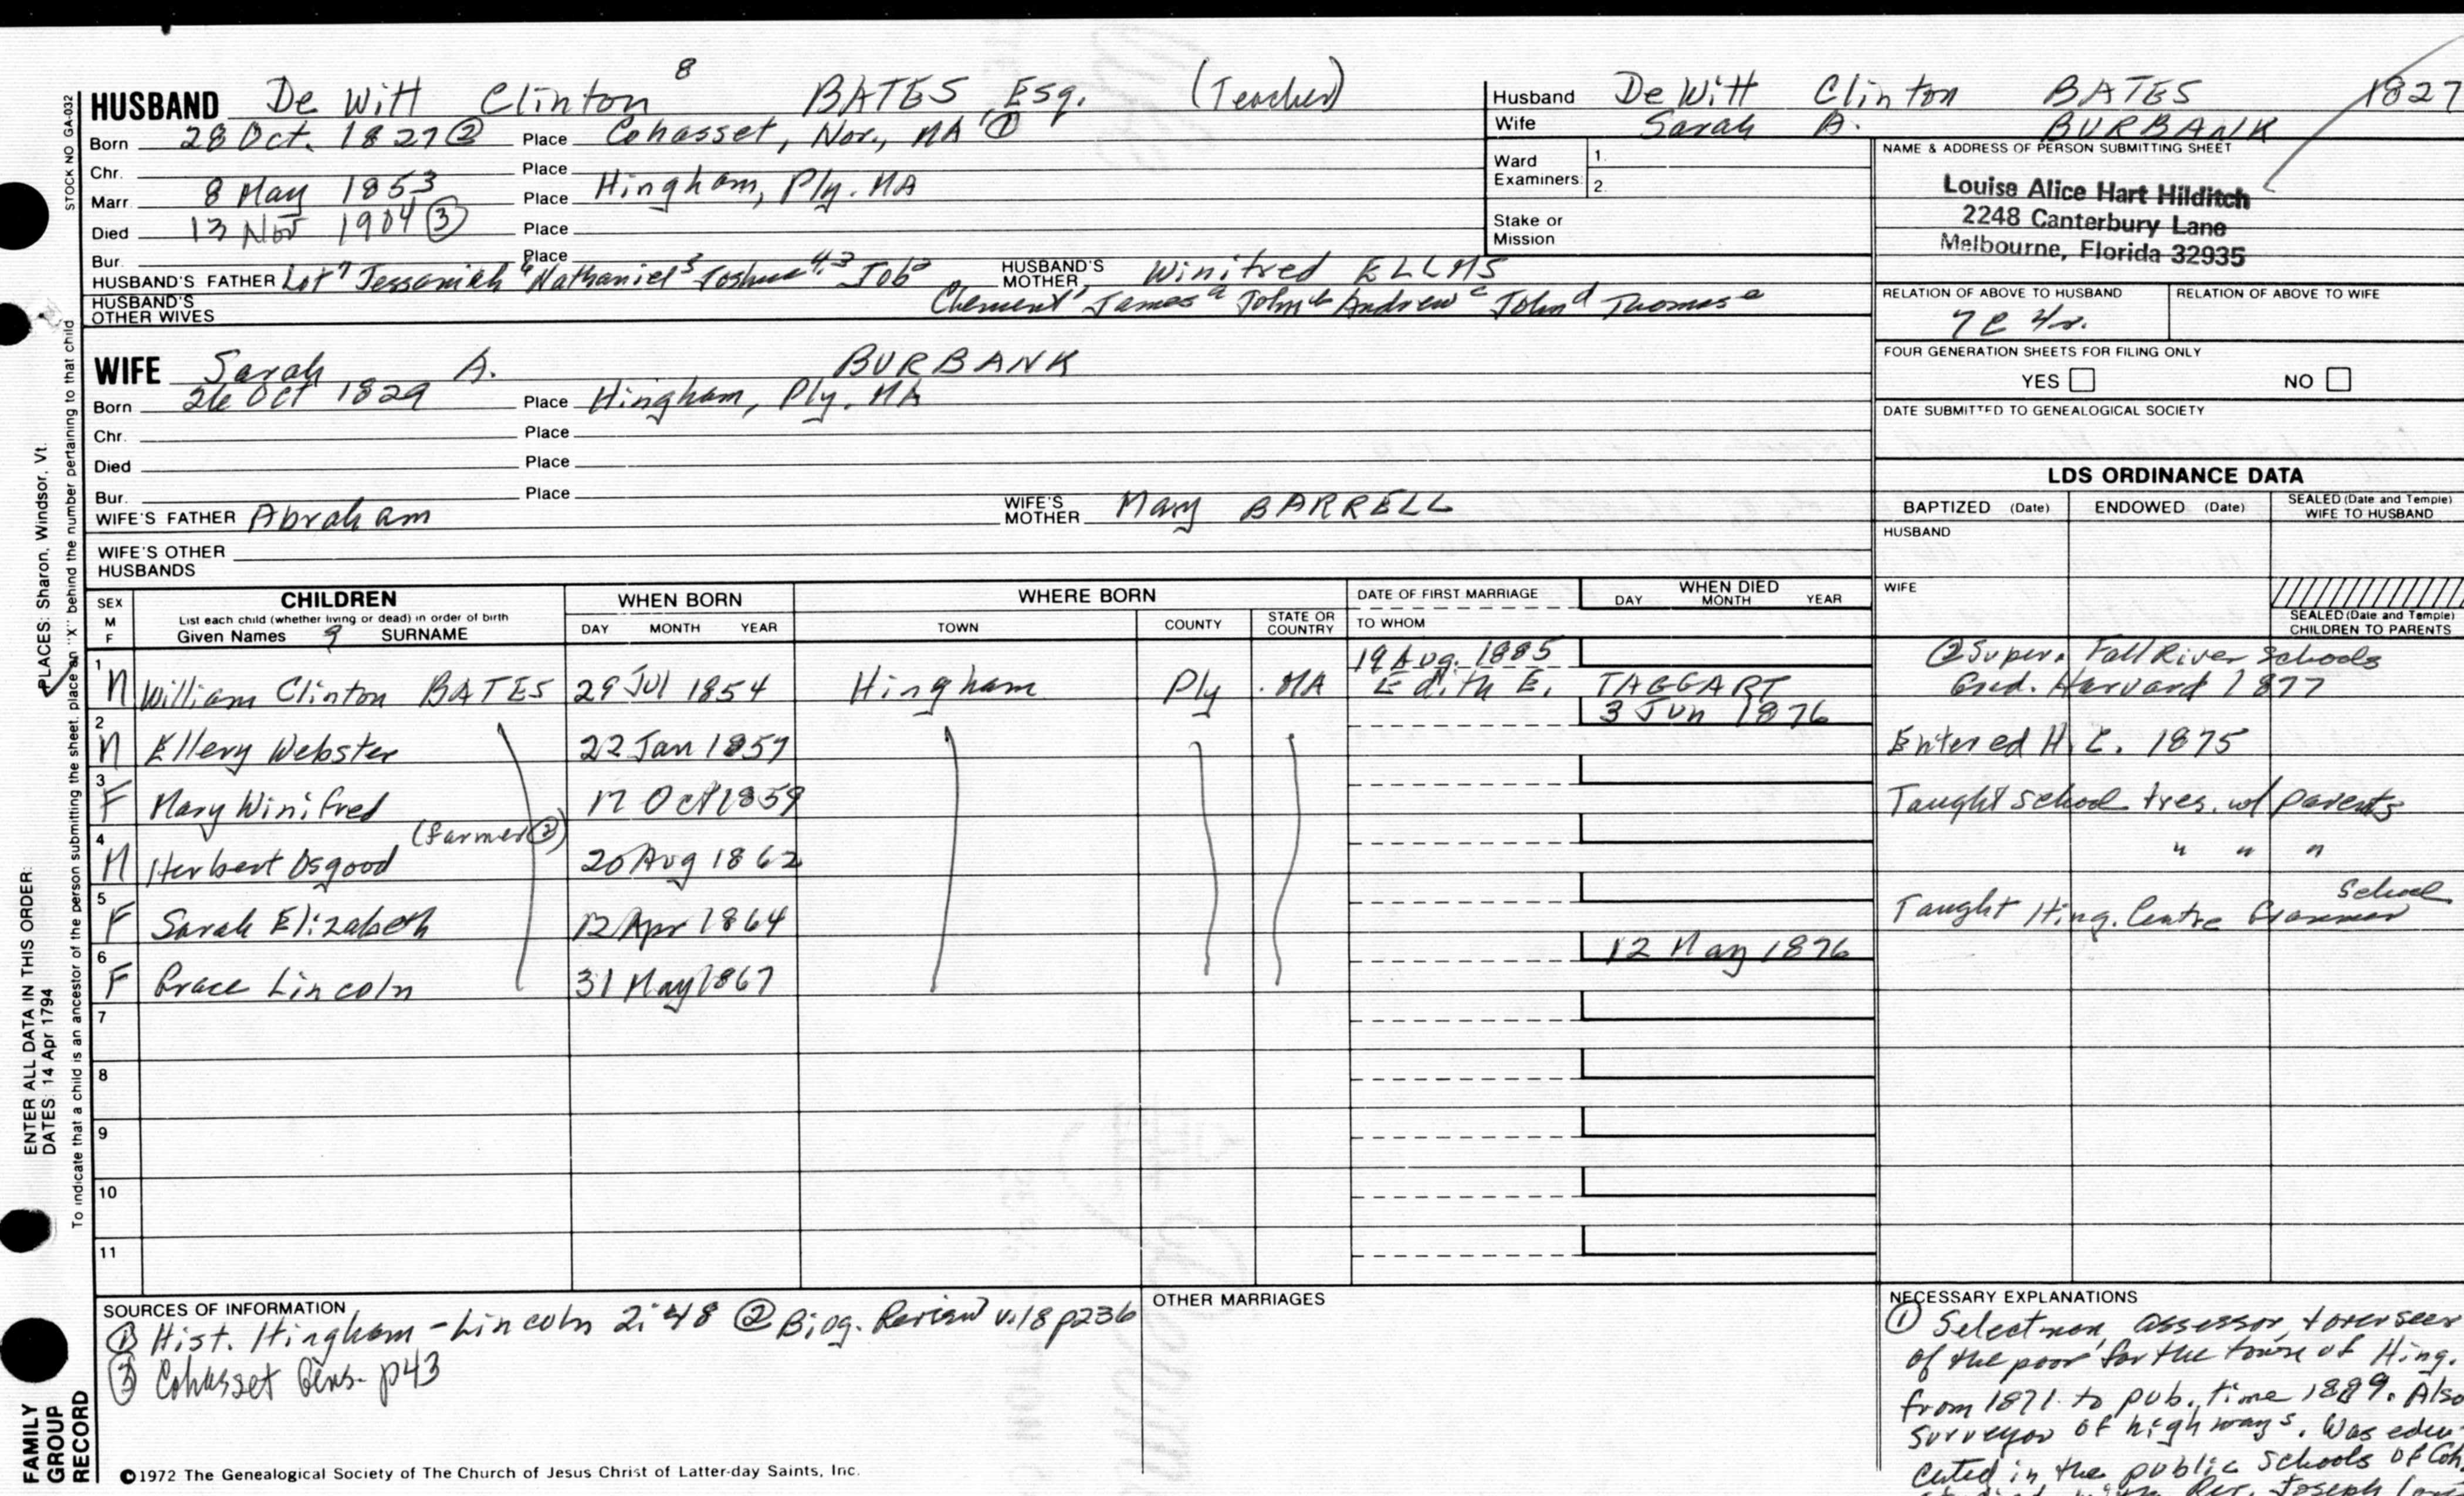 HUSBAND De Witt Clinton 8 BATES, Esq. (Teacher)
Born 28 Oct. 1827 ② Place Cohasset, Nor., MA ①
Chr. Place
Marr. 8 May 1853 Place Hingham, Ply. MA
Died 13 Nov 1904 ③ Place
Bur. Place
HUSBAND'S FATHER Lot 7 Jessaniah 6 Nathaniel 5 Joshua 4,3 Job 2 HUSBAND'S MOTHER Winifred ELLMS
Clement 1 James a John b Andrew c John d Thomas e
HUSBAND'S OTHER WIVES
WIFE Sarah A. BURBANK
Born 26 Oct 1829 Place Hingham, Ply. MA
Chr. Place
Died Place
Bur. Place
WIFE'S FATHER Abraham WIFE'S MOTHER Mary BARRELL
WIFE'S OTHER HUSBANDS
Husband De Witt Clinton BATES 1827
Wife Sarah A. BURBANK
Ward Examiners: 1.
2.
Stake or Mission
NAME & ADDRESS OF PERSON SUBMITTING SHEET
Louise Alice Hart Hilditch
2248 Canterbury Lane
Melbourne, Florida 32935
RELATION OF ABOVE TO HUSBAND RELATION OF ABOVE TO WIFE
7C 4r.
FOUR GENERATION SHEETS FOR FILING ONLY
YES NO
DATE SUBMITTED TO GENEALOGICAL SOCIETY
LDS ORDINANCE DATA
BAPTIZED (Date) ENDOWED (Date) SEALED (Date and Temple) WIFE TO HUSBAND
HUSBAND
WIFE
SEALED (Date and Temple) CHILDREN TO PARENTS
SEX M F
CHILDREN
List each child (whether living or dead) in order of birth
Given Names 9 SURNAME
WHEN BORN
DAY MONTH YEAR
WHERE BORN
TOWN COUNTY STATE OR COUNTRY
DATE OF FIRST MARRIAGE
TO WHOM
WHEN DIED
DAY MONTH YEAR
1 M William Clinton BATES 29 Jul 1854 Hingham Ply. MA 19 Aug. 1885 Edith E. TAGGART
② Super. Fall River Schools
Grad. Harvard 1877
2 M Ellery Webster 22 Jan 1857 3 Jun 1876 Entered H. C. 1875
3 F Mary Winifred 17 Oct 1859 Taught school & res. w/ parents
4 M Herbert Osgood (farmer ②) 20 Aug 1862 " " "
5 F Sarah Elizabeth 12 Apr 1864 Taught Hing. Centre Grammar School
6 F Grace Lincoln 31 May 1867 12 May 1876
7
8
9
10
11
SOURCES OF INFORMATION
① Hist. Hingham - Lincoln 2:48 ② Biog. Review v.18 p236
③ Cohasset Gens. p43
OTHER MARRIAGES
NECESSARY EXPLANATIONS
① Selectman, assessor, & overseer
of the poor for the town of Hing.
from 1871 to pub. time 1889. Also
surveyor of highways. Was edu-
cated in the public schools of Coh.
Rev. Joseph
©1972 The Genealogical Society of The Church of Jesus Christ of Latter-day Saints, Inc.
STOCK NO GA-032
To indicate that a child is an ancestor of the person submitting the sheet, place an "X" behind the number pertaining to that child
PLACES: Sharon, Windsor, Vt.
ENTER ALL DATA IN THIS ORDER:
DATES: 14 Apr 1794
FAMILY GROUP RECORD